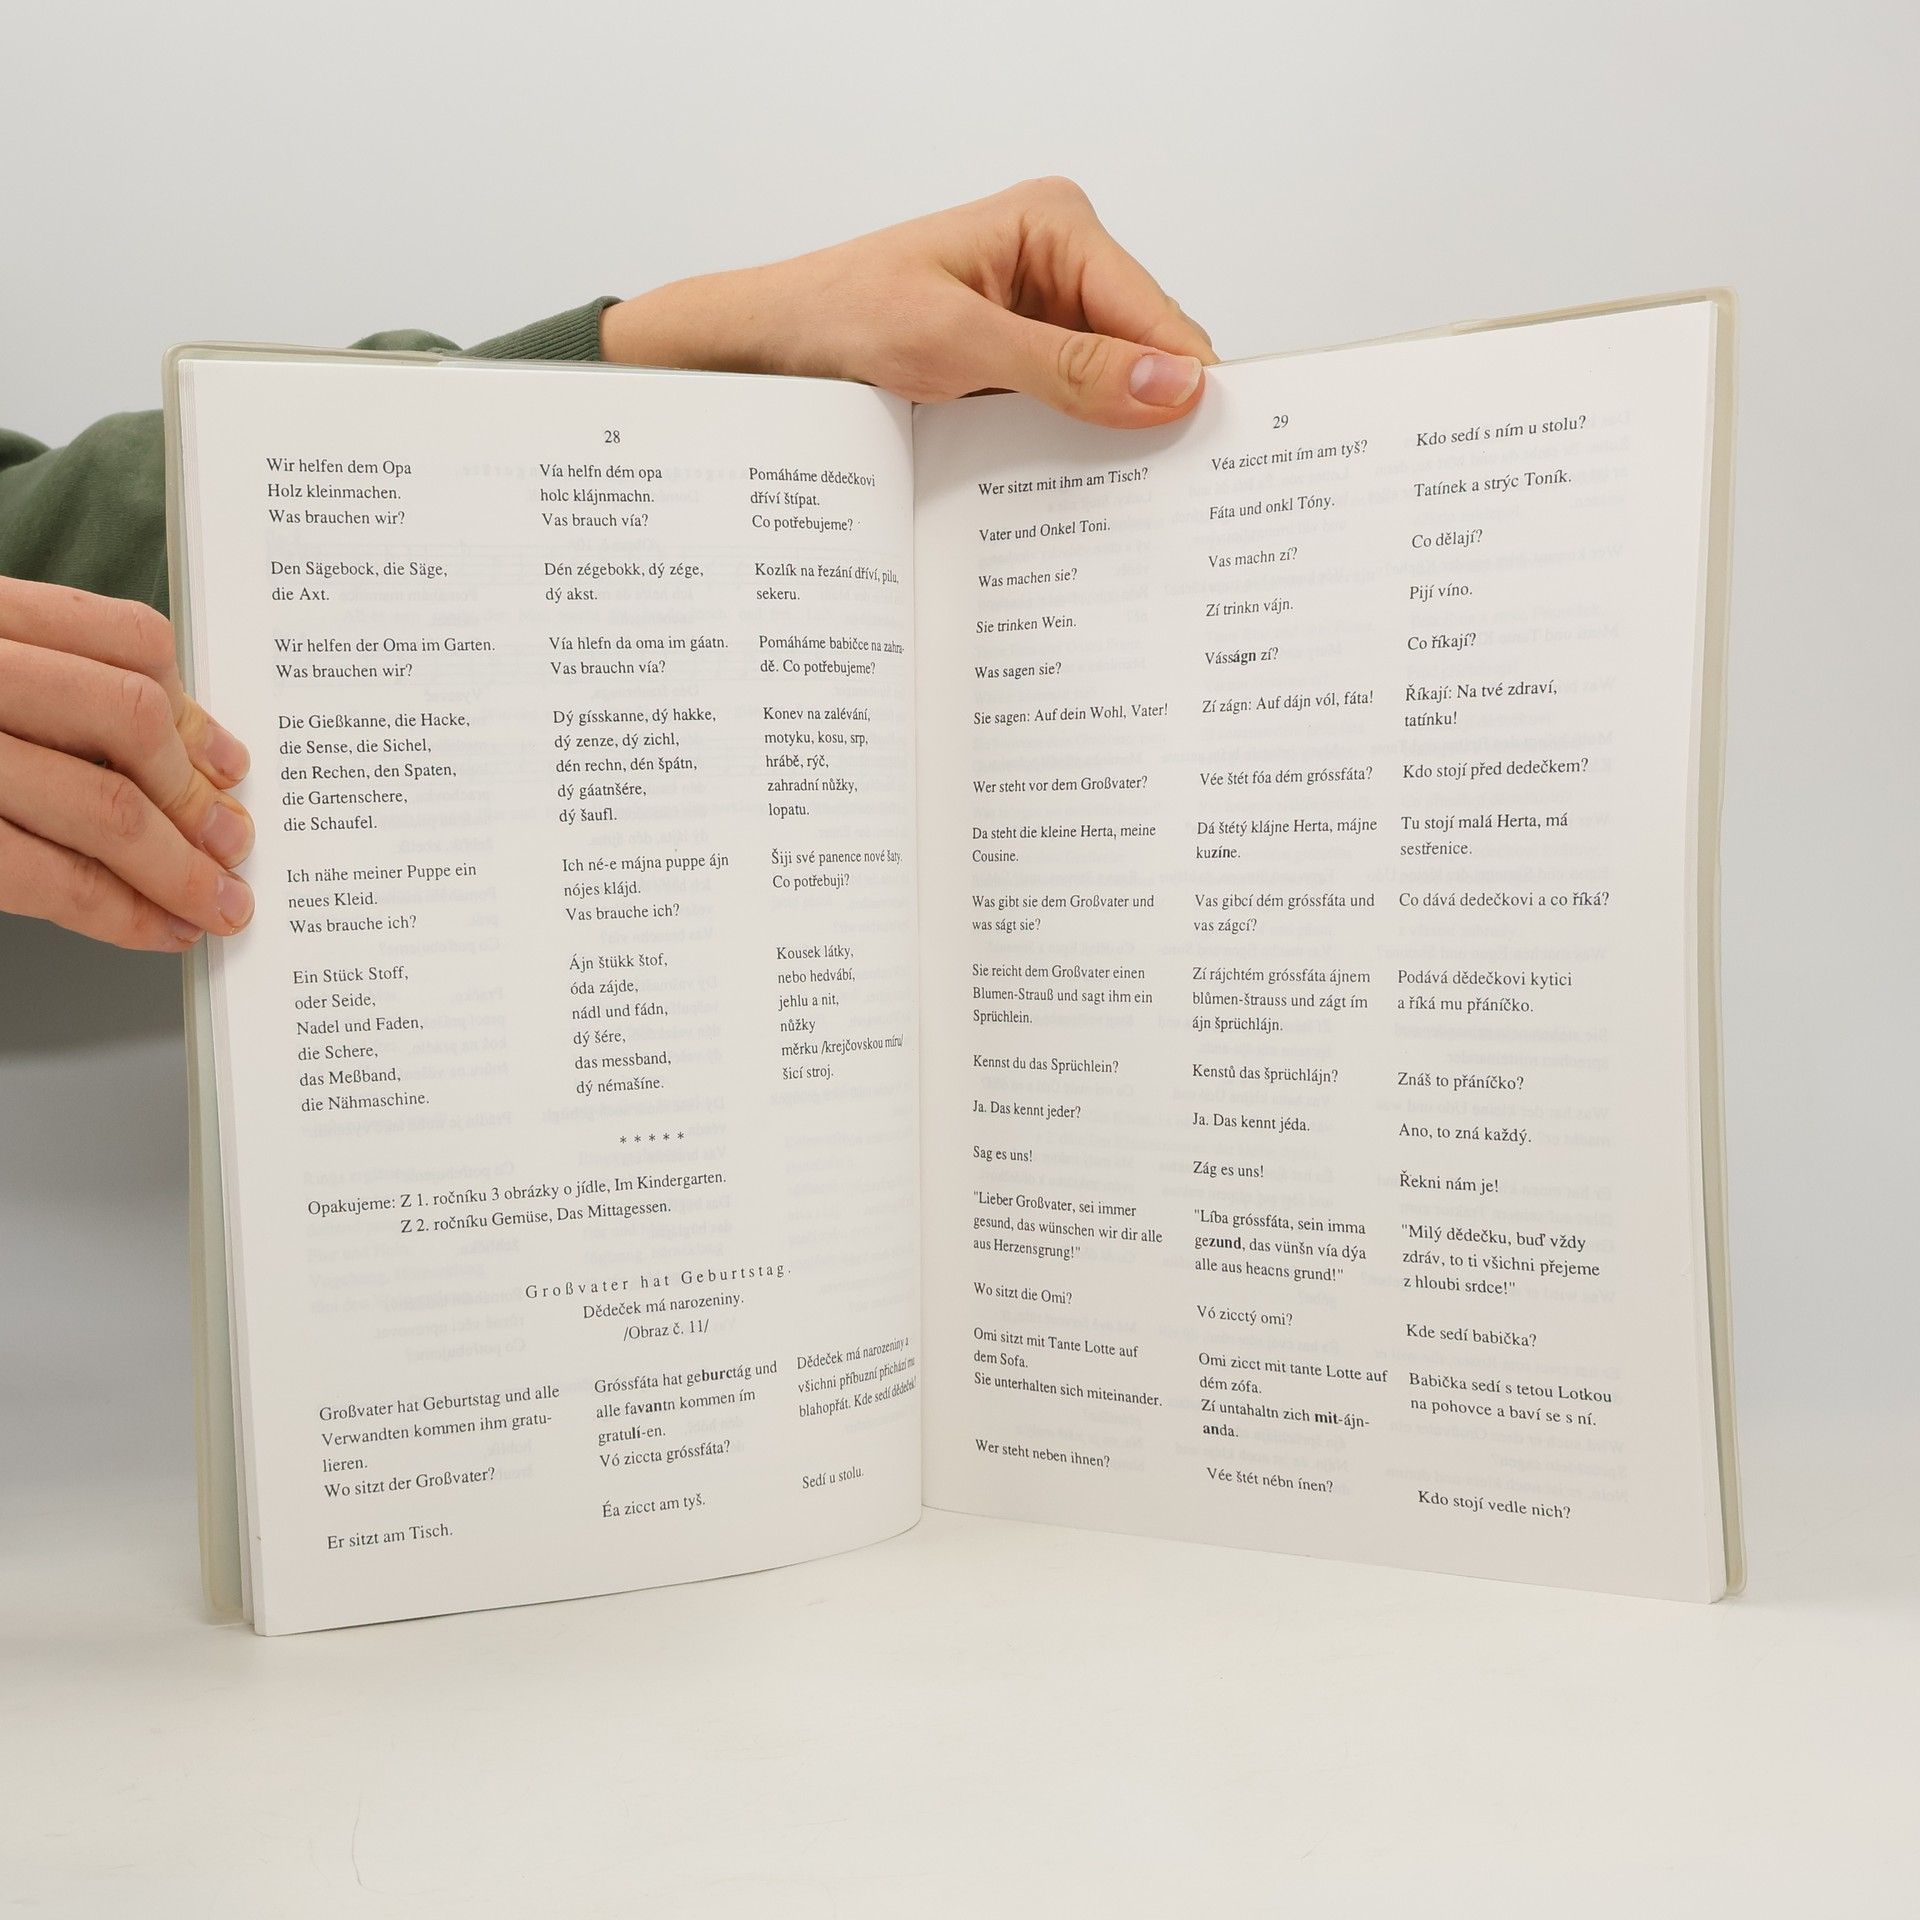 28
Wir helfen dem Opa
Holz kleinmachen.
Was brauchen wir?
Den Sägebock, die Säge,
die Axt.
Wir helfen der Oma im Garten.
Was brauchen wir?
Die Gießkanne, die Hacke,
die Sense, die Sichel,
den Rechen, den Spaten,
die Gartenschere,
die Schaufel.
Ich nähe meiner Puppe ein
neues Kleid.
Was brauche ich?
Ein Stück Stoff,
oder Seide,
Nadel und Faden,
die Schere,
das Meßband,
die Nähmaschine.
Vía helfn dém opa
holc klájnmachn.
Vas brauch vía?
Dén zégebokk, dý zége,
dý akst.
Vía hlefn da oma im gáatn.
Vas brauchn vía?
Dý gísskanne, dý hakke,
dý zenze, dý zichl,
dén rechn, dén špátn,
dý gáatnšére,
dý šaufl.
Ich né-e májna puppe ájn
nójes klájd.
Vas brauche ich?
Ájn štükk štof,
óda zájde,
nádl und fádn,
dý šére,
das messband,
dý némašíne.
Pomáháme dědečkovi
dříví štípat.
Co potřebujeme?
Kozlík na řezání dříví, pilu,
sekeru.
Pomáháme babičce na zahra-
dě. Co potřebujeme?
Konev na zalévání,
motyku, kosu, srp,
hrábě, rýč,
zahradní nůžky,
lopatu.
Šiji své panence nové šaty.
Co potřebuji?
Kousek látky,
nebo hedvábí,
jehlu a nit,
nůžky
měrku /krejčovskou míru/
šicí stroj.
* * * * *
Opakujeme: Z 1. ročníku 3 obrázky o jídle, Im Kindergarten.
Z 2. ročníku Gemüse, Das Mittagessen.
Großvater hat Geburtstag.
Dědeček má narozeniny.
/Obraz č. 11/
Großvater hat Geburtstag und alle
Verwandten kommen ihm gratu-
lieren.
Wo sitzt der Großvater?
Er sitzt am Tisch.
Gróssfáta hat geburctág und
alle favantn kommen ím
gratulí-en.
Vó ziccta gróssfáta?
Éa zicct am tyš.
Dědeček má narozeniny a
všichni příbuzní přichází mu
blahopřát. Kde sedí dědeček?
Sedí u stolu.
29
Wer sitzt mit ihm am Tisch?
Vater und Onkel Toni.
Was machen sie?
Sie trinken Wein.
Was sagen sie?
Sie sagen: Auf dein Wohl, Vater!
Wer steht vor dem Großvater?
Da steht die kleine Herta, meine
Cousine.
Was gibt sie dem Großvater und
was sägt sie?
Sie reicht dem Großvater einen
Blumen-Strauß und sagt ihm ein
Sprüchlein.
Kennst du das Sprüchlein?
Ja. Das kennt jeder?
Sag es uns!
"Lieber Großvater, sei immer
gesund, das wünschen wir dir alle
aus Herzensgrung!"
Wo sitzt die Omi?
Omi sitzt mit Tante Lotte auf
dem Sofa.
Sie unterhalten sich miteinander.
Wer steht neben ihnen?
Véa zicct mit ím am tyš?
Fáta und onkl Tóny.
Vas machn zí?
Zí trinkn vájn.
Vásságn zí?
Zí zágn: Auf dájn vól, fáta!
Vée štét fóa dém gróssfáta?
Dá štétý klájne Herta, májne
kuzíne.
Vas gibcí dém gróssfáta und
vas zágcí?
Zí rájchtém gróssfáta ájnem
blůmen-štrauss und zágt ím
ájn šprüchlájn.
Kenstů das šprüchlájn?
Ja. Das kennt jéda.
Zág es uns!
"Líba gróssfáta, sein imma
gezund, das vünšn vía dýa
alle aus heacns grund!"
Vó zicctý omi?
Omi zicct mit tante Lotte auf
dém zófa.
Zí untahaltn zich mit-ájn-
anda.
Vée štét nébn ínen?
Kdo sedí s ním u stolu?
Tatínek a strýc Toník.
Co dělají?
Pijí víno.
Co říkají?
Říkají: Na tvé zdraví,
tatínku!
Kdo stojí před dedečkem?
Tu stojí malá Herta, má
sestřenice.
Co dává dedečkovi a co říká?
Podává dědečkovi kytici
a říká mu přáníčko.
Znáš to přáníčko?
Ano, to zná každý.
Řekni nám je!
"Milý dědečku, buď vždy
zdráv, to ti všichni přejeme
z hloubi srdce!"
Kde sedí babička?
Babička sedí s tetou Lotkou
na pohovce a baví se s ní.
Kdo stojí vedle nich?